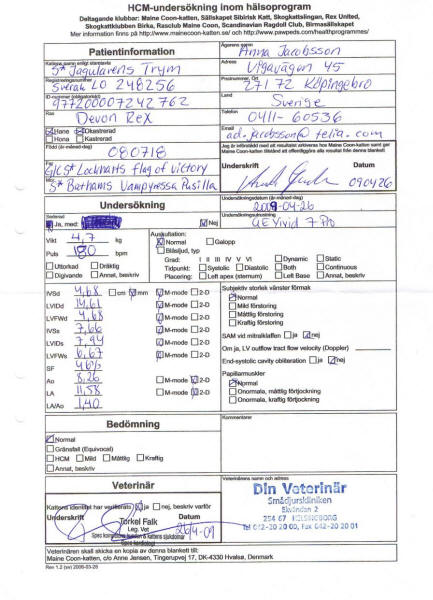 HCM-undersökning inom hälsoprogram
Deltagande klubbar: Maine Coon-katten, Sällskapet Sibirisk Katt, Skogkattslingan, Rex United,
Skogkattklubben Birka, Rasclub Maine Coon, Scandinavian Ragdoll Club, Birmasällskapet
Mer information finns på http://www.maine-coon-katten.se/ och http://www.pawpeds.com/healthprogrammes/
Patientinformation
Kattens namn enligt stamtavla
S* Jagularens Trym
Registreringsnummer
Sverak LO 248256
ID-nummer (obligatoriskt)
977200007242762
Ras
Devon Rex
Hane Okastrerad
Hona Kastrerad
Född (år-månad-dag)
080718
Far
GIC S* Lockharts flag of victory
Mor
S* Bathams Vampyressa Pusilla
Ägarens namn
Anna Jacobsson
Adress
Vigavägen 45
Postnummer, Ort
271 72 Köpingebro
Land
Sverige
Telefon
0411-60536
Email
ad.jacobsson@telia.com
Jag är införstådd med att resultatet arkiveras hos Maine Coon-katten samt ger
Maine Coon-katten tillstånd att offentliggöra alla resultat från denna blankett
Underskrift Datum
090426
Undersökning
Sederad
Ja, med: Nej
Vikt 4,7 kg
Puls 180 bpm
Uttorkad Dräktig
Digivande Annat, beskriv
Undersökningsdatum (år-månad-dag)
2009-04-26
Undersökningsutrustning
GE Vivid 7 Pro
Auskultation:
Normal Galopp
Blåsljud, typ
Grad: I II III IV V VI Dynamic Static
Tidpunkt: Systolic Diastolic Both Continuous
Placering: Left apex (sternum) Left Base Annat, beskriv
IVSd 4,68 cm mm M-mode 2-D
LVIDd 14,61 M-mode 2-D
LVFWd 4,68 M-mode 2-D
IVSs 7,66 M-mode 2-D
LVIDs 7,94 M-mode 2-D
LVFWs 6,67 M-mode 2-D
SF 46%
Ao 8,26 M-mode 2-D
LA 11,58 M-mode 2-D
LA/Ao 1,40
Subjektiv storlek vänster förmak
Normal
Mild förstoring
Måttlig förstoring
Kraftig förstoring
SAM vid mitralklaffen ja nej
Om ja, LV outflow tract flow velocity (Doppler)
End-systolic cavity obliteration ja nej
Papillarmuskler
Normal
Onormala, måttlig förtjockning
Onormala, kraftig förtjockning
Bedömning
Normal
Gränsfall (Equivocal)
HCM Mild Måttlig Kraftig
Annat, beskriv
Kommentarer
Veterinär
Kattens identitet har verifierats ja nej, beskriv varför
Underskrift Datum
Torkel Falk
Leg. Vet
26/4-09
Veterinärens namn och adress
Din Veterinär
Smådjurskliniken
Ekvändan 2
254 67 HELSINGBORG
Tel 042-20 20 00, Fax 042-20 20 01
Veterinären skall skicka en kopia av denna blankett till:
Maine Coon-katten, c/o Anne Jensen, Tingerupvej 17, DK-4330 Hvalsø, Denmark